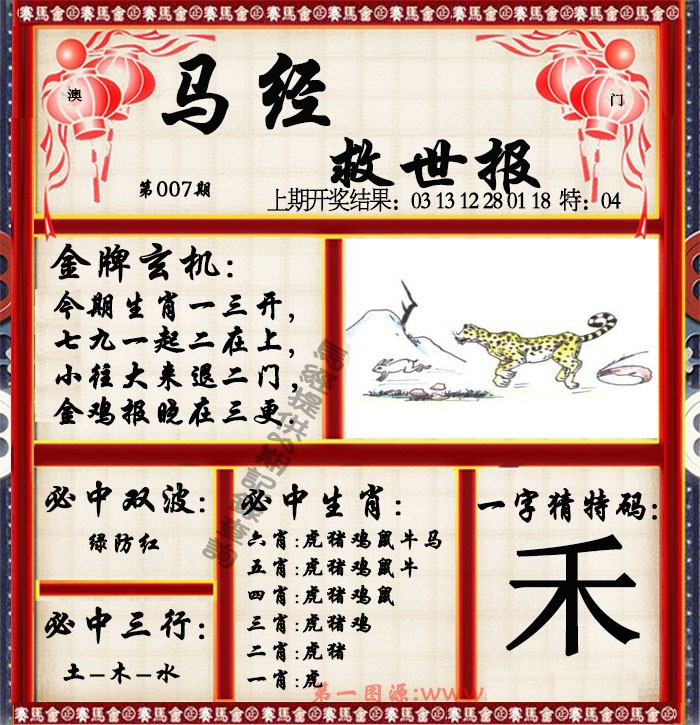 賽馬會正賽馬會正賽馬會正賽馬會正賽馬會正賽馬會正賽馬會正賽馬會
澳
门
马经
救世报
第007期
上期开奖结果：03 13 12 28 01 18 特：04
金牌玄机：
今期生肖一三开，
七九一起二在上，
小往大来退二门，
金鸡报晓在三更.
必中双波：
绿防红
必中三行：
土-木-水
必中生肖：
六肖:虎猪鸡鼠牛马
五肖:虎猪鸡鼠牛
四肖:虎猪鸡鼠
三肖:虎猪鸡
二肖:虎猪
一肖:虎
一字猜特码：
禾
第一图源:www